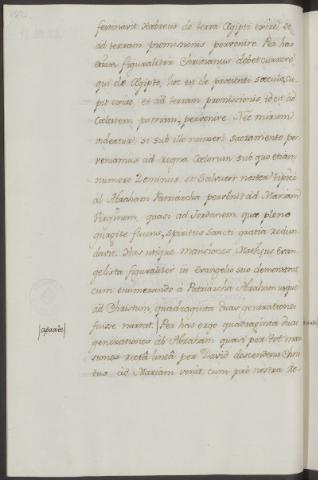 festinavit Hebreus de terra Ægipti exire et
ad terram promissionis pervenire. Per has
etiam figuraliter Christianus debet currere
qui de Ægipto, hoc est de præsenti sæculo, cu-
pit exire, et ad terram promissionis, id est ad
Cœlestem patriam, pervenire. Nec mirum
videatur, si sub illo numeri sacramento per
veniamus ad regna Cœlorum sub quo etiam
numero Dominus et Salvator noster
ab Abraham Patriarcha pervenit ad Mariam
Virginem, quasi ad Jordanem quæ pleno
gurgite fluens, spiritus Sancti gratia redun-
davit. Has utique mansiones Matheus Evan-
gelista figuraliter in Evangelio suo demonstrat
cum enumerando à Patriarcha Abraham usque
ad Christum, quadraginta duas generationes
fuisse narrat. Per has ergo quadraginta duas
generationes ab Abraham quasi per tot man
siones rectâ lineâ per David descendens Chris
tus ad Mariam venit, cum pro nostra re-